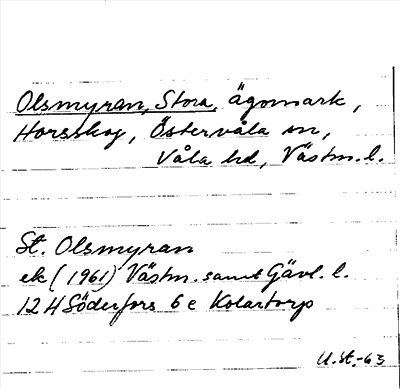 Olsmyran, Stora, ägomark,
Horsskog, Östervåla sn,
Våla hd, Västm. l.
St. Olsmyran
ek (1961) Västm. samt Gävl. l.
12 H Söderfors 6 e Kolartorp
U. St.-63